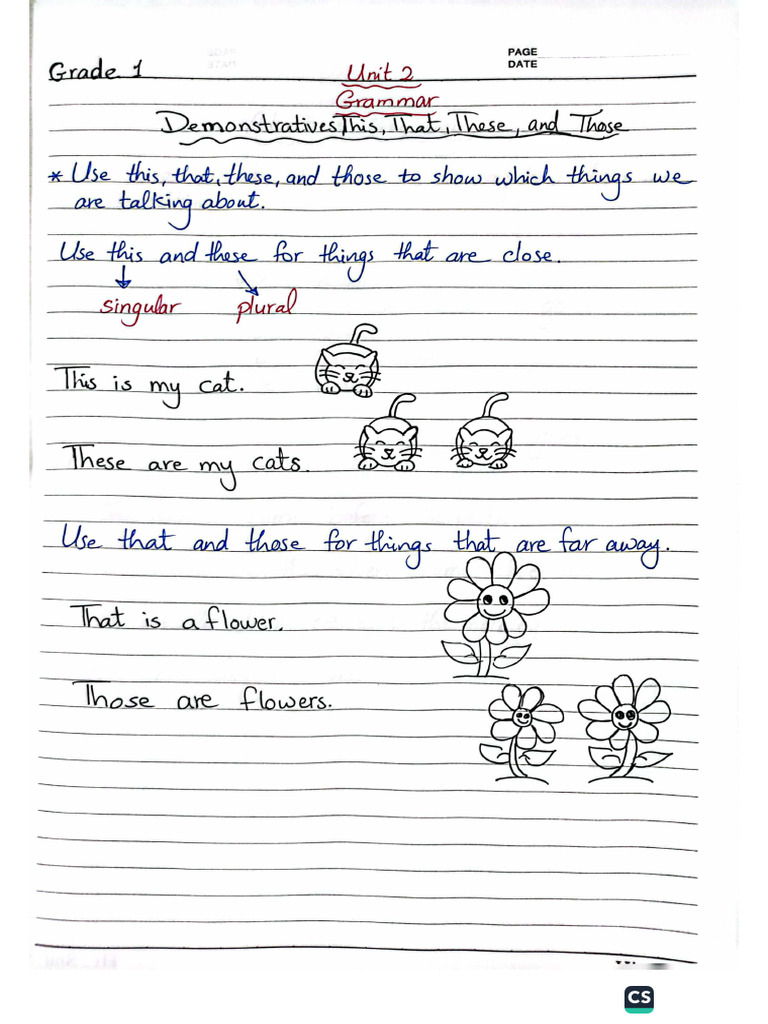 PAGE
DATE
Grade 1
Unit 2
Grammar
Demonstratives This, That, These, and Those
* Use this, that, these, and those to show which things we
are talking about.
Use this and these for things that are close.
singular plural
This is my cat.
These are my cats.
Use that and those for things that are far away.
That is a flower.
Those are flowers.
CS